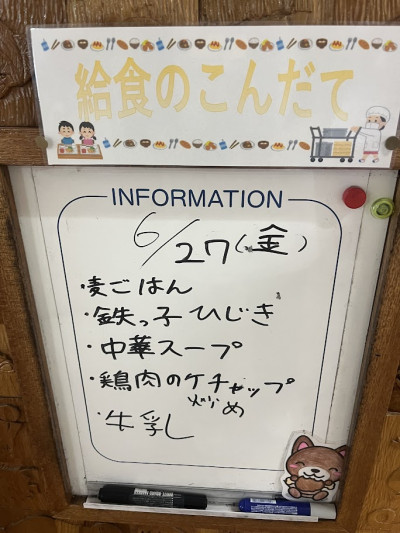 給食のこんだて
INFORMATION
6/27(金)
・麦ごはん
・鉄っ子ひじき
・中華スープ
・鶏肉のケチャップ
炒め
・牛乳